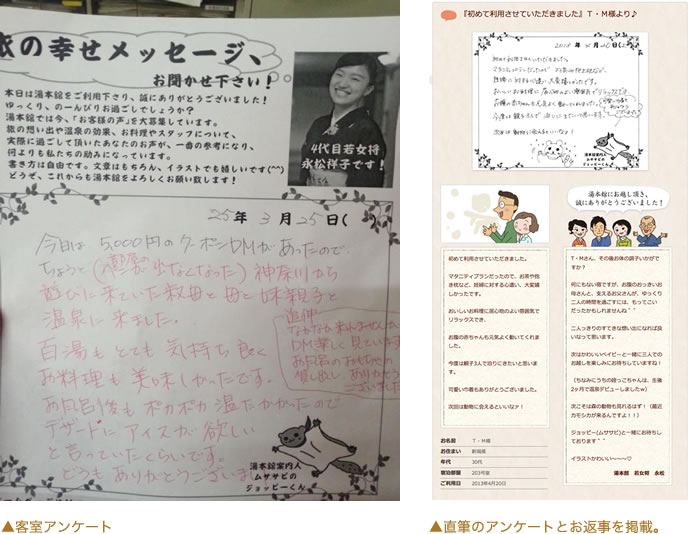 旅の幸せメッセージ、
お聞かせ下さい！
本日は湯本館をご利用下さり、誠にありがとうございます！
ゆっくり、のーんびりお過ごしでしょうか？
湯本館では今、「お客様の声」を大募集しています。
旅の想い出や温泉の効果、お料理やスタッフについて、
実際に過ごして頂いたあなたのお声が、一番の参考になり、
何よりも私たちの励みになっています。
書き方は自由です。文章はもちろん、イラストでも嬉しいです(^^)
どうぞ、これからも湯本館をよろしくお願い致します！
4代目若女将
永松祥子です！
25年 3月25日(
今日は 5,000円のクーポンDMがあったので
ちょっと(出なくなった) 神奈川から
遊びに来ていた叔母と母と妹親子と
温泉に来ました。
百湯もとても気持ち良く
お料理も美味しかったです。
お風呂後もポカポカ温たかかったので
デザートにアイスが欲しい
と言っていたくらいです。
どうもありがとうございま
追伸
なかなか来れませんが
DM楽しく見ています
お風呂のおもちゃの
貸し出し ありがとう
ございました
湯本館案内人
ムササビの
ジョッピーくん
▲客室アンケート
『初めて利用させていただきました』T・M様より♪
初めて利用させていただきました。
湯本館案内人
ムササビの
ジョッピーくん
湯本館にお越し頂き、
誠にありがとうございました！
初めて利用させていただきました。
マタニティプランだったので、お茶や抱き枕など、妊婦に対する心遣い、大変嬉しかったです。
おいしいお料理に居心地のよい雰囲気でリラックスでき、
お腹の赤ちゃんも元気よく動いてくれました。
今度は親子3人で泊りにきたいと思います。
可愛いの着もありがとうございました。
次回は動物に会えるといいなァ！
お名前 T・M様
お住まい 新潟県
年代 30代
宿泊部屋 203号室
ご利用日 2013年4月20日
T・Mさん、その後お体の調子いかがですか？
何にもない宿ですが、お腹のおっきいお母さんと、支えるお父さんが、ゆっくり二人の時間を過ごすには、もってこいだったかもしれませんね＾＾
二人っきりのすてきな想い出になれば良いなって思います。
次はかわいいベイビーと一緒に三人でのお越しを楽しみにお待ちしていますね！
（ちなみにうちの姪っこちゃんは、生後2ヶ月で温泉デビューしましたｗ）
次こそは森の動物も見れるはず！（最近カモシカが来るんですよ！！）
ジョッピー(ムササビ)と一緒にお待ちしております＾＾
イラストかわいい～～～♡
湯本館 若女将 永松
▲直筆のアンケートとお返事を掲載。